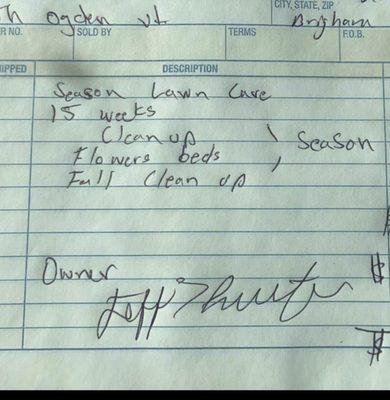 CITY, STATE, ZIP
th Ogden Ut. Brigham
R NO. SOLD BY TERMS F.O.B.
IPPED DESCRIPTION
Season Lawn Care
15 weeks
Clean up
Flowers beds Season
Fall Clean up
Owner $
Jeff
$